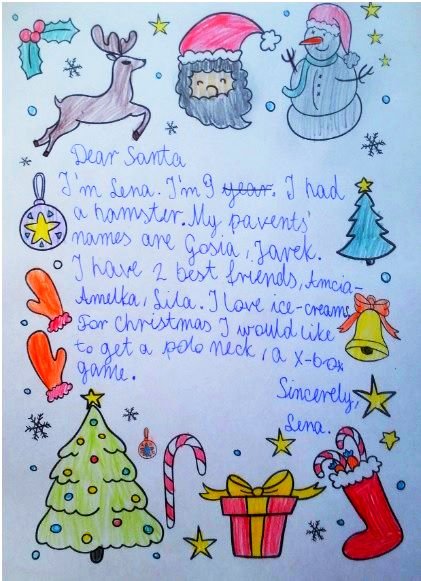 Dear Santa
I'm Lena. I'm 9 year. I had
a hamster. My parents'
names are Gosia, Jarek.
I have 2 best friends, Amcia-
Amelka, Lila. I love ice-creams
For christmas I would like
to get a polo neck, a x-box
game.
Sincerely,
Lena.